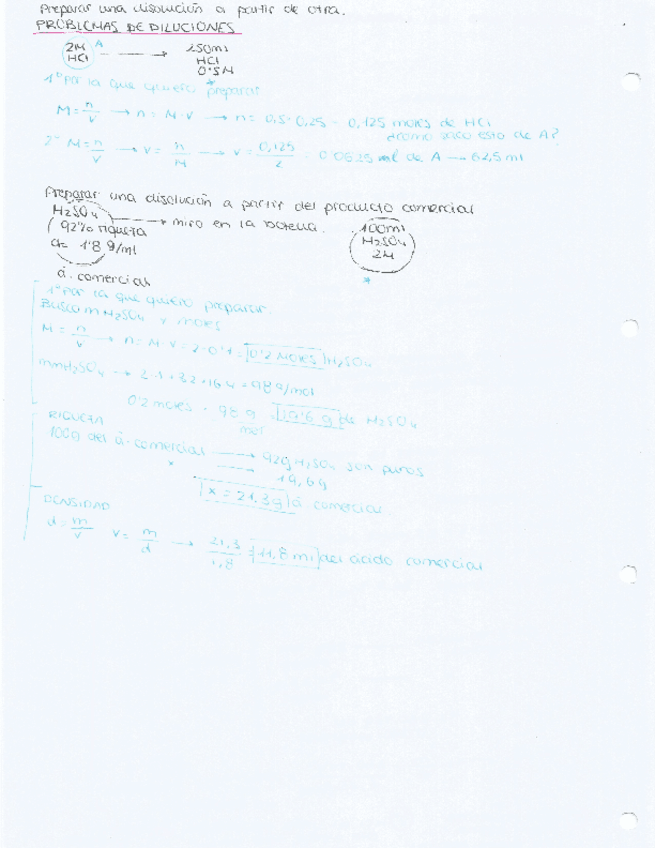 Preparar una disolución a partir de otra.
PROBLEMAS DE DILUCIONES
2M A → 250ml
HCl HCl
0'5M
1º por la que quiero preparar *
M = n/V → n = M·V → n = 0,5·0,25 = 0,125 moles de HCl
¿cómo saco esto de A?
2º M = n/V → V = n/M → V = 0,125/2 = 0'0625 ml de A → 62,5 ml
Preparar una disolución a partir del producto comercial
H₂SO₄ → miro en la botella. 100ml
92% riqueza H₂SO₄
d = 1'8 g/ml 2M
á. comercial *
1º por la que quiero preparar.
Busco m H₂SO₄ y moles
M = n/V → n = M·V = 2·0'1 = 0'2 moles H₂SO₄
mmH₂SO₄ → 2·1+32+16·4 = 98 g/mol
0'2 moles · 98 g/mol = 19'6 g de H₂SO₄
RIQUEZA
100g del á. comercial → 92g H₂SO₄ son puros
x → 19,6g
x = 21,3g á comercial
DENSIDAD
d = m/V V = m/d → 21,3/1,8 = 11,8 ml del ácido comercial